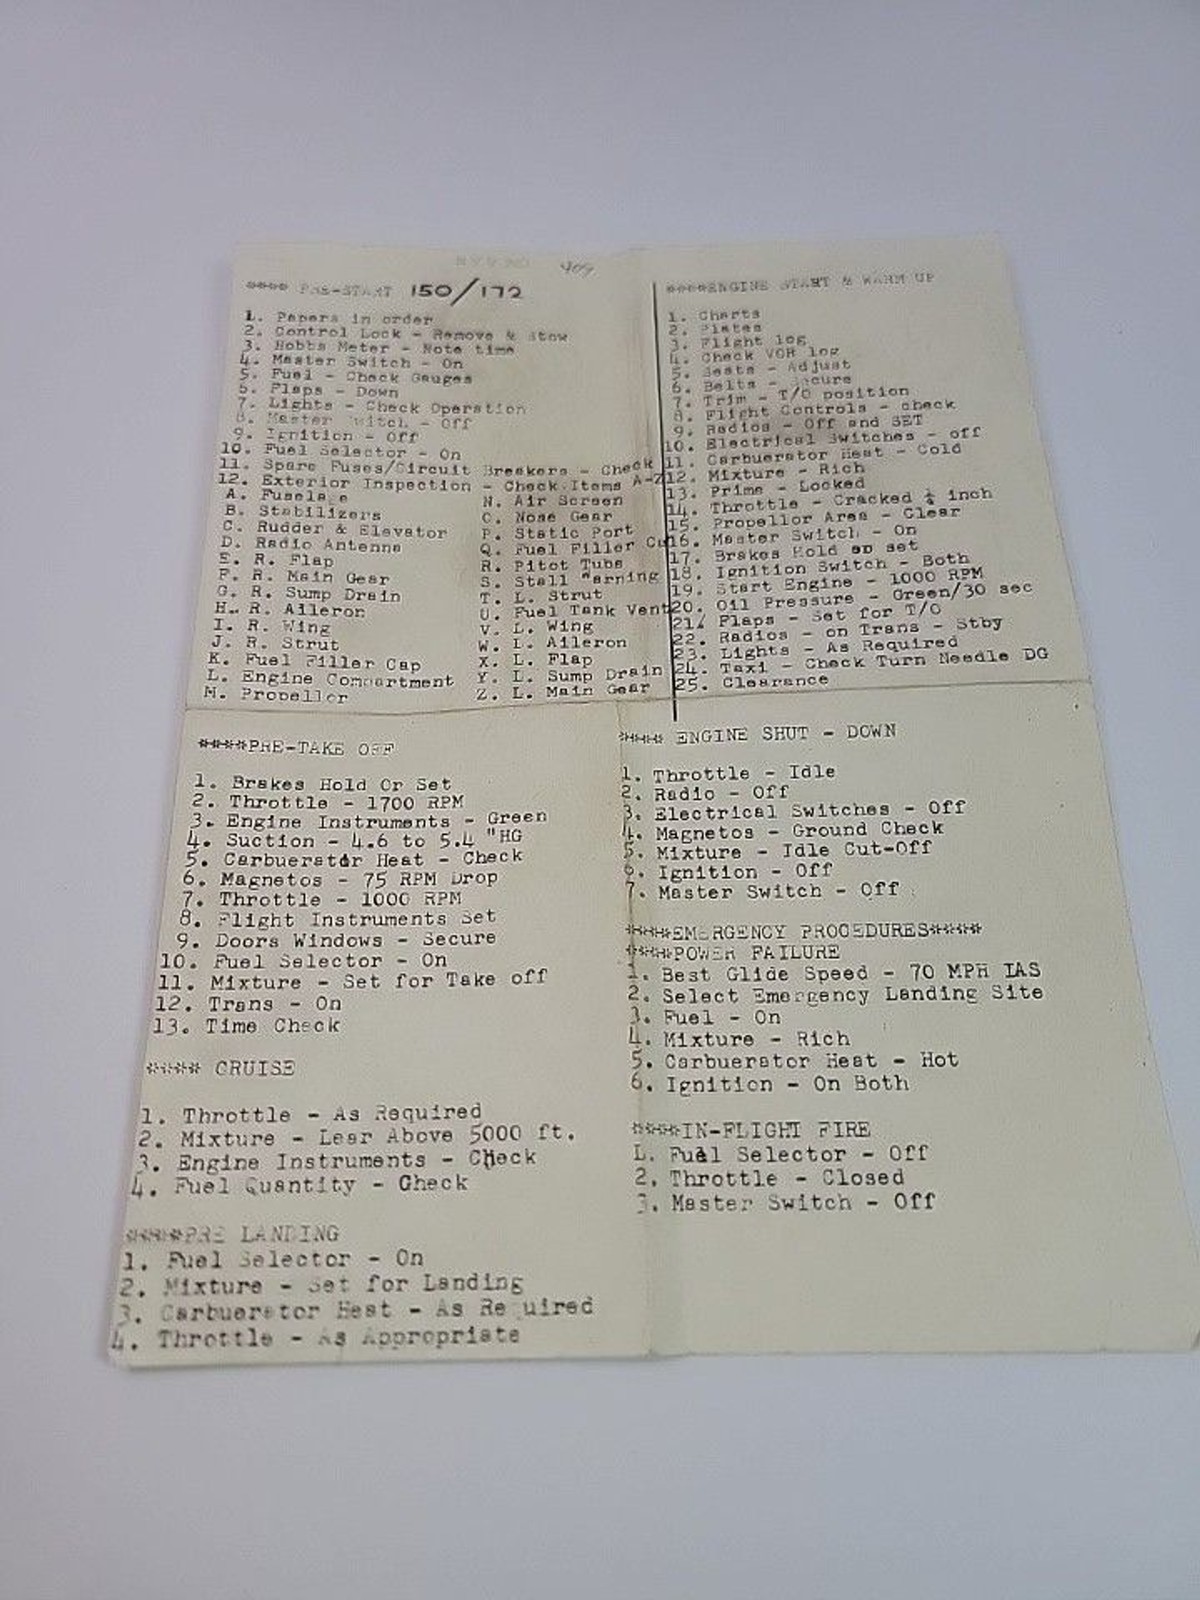 409
**** PRE-START 150/172
1. Papers in order
2. Control Lock - Remove & Stow
3. Hobbs Meter - Note time
4. Master Switch - On
5. Fuel - Check Gauges
6. Flaps - Down
7. Lights - Check Operation
8. Master Switch - Off
9. Ignition - Off
10. Fuel Selector - On
11. Spare Fuses/Circuit Breakers - Check
12. Exterior Inspection - Check Items A-Z
A. Fuselage
B. Stabilizers
C. Rudder & Elevator
D. Radio Antenna
E. R. Flap
F. R. Main Gear
G. R. Sump Drain
H. R. Aileron
I. R. Wing
J. R. Strut
K. Fuel Filler Cap
L. Engine Compartment
M. Propeller
N. Air Screen
O. Nose Gear
P. Static Port
Q. Fuel Filler
R. Pitot Tube
S. Stall Warning
T. L. Strut
U. Fuel Tank Vent
V. L. Wing
W. L. Aileron
X. L. Flap
Y. L. Sump Drain
Z. L. Main Gear
****ENGINE START & WARM UP
1. Charts
2. Plates
3. Flight log
4. Check VOR log
5. Seats - Adjust
6. Belts - Secure
7. Trim - T/O position
8. Flight Controls - check
9. Radios - Off and SET
10. Electrical Switches - off
11. Carbuerator Heat - Cold
12. Mixture - Rich
13. Prime - Locked
14. Throttle - Cracked ¼ inch
15. Propellor Area - Clear
16. Master Switch - On
17. Brakes Hold or set
18. Ignition Switch - Both
19. Start Engine - 1000 RPM
20. Oil Pressure - Green/30 sec
21/ Flaps - Set for T/O
22. Radios - on Trans - Stby
23. Lights - As Required
24. Taxi - Check Turn Needle DG
25. Clearance
****PRE-TAKE OFF
1. Brakes Hold Or Set
2. Throttle - 1700 RPM
3. Engine Instruments - Green
4. Suction - 4.6 to 5.4 "HG
5. Carbuerator Heat - Check
6. Magnetos - 75 RPM Drop
7. Throttle - 1000 RPM
8. Flight Instruments Set
9. Doors Windows - Secure
10. Fuel Selector - On
11. Mixture - Set for Take off
12. Trans - On
13. Time Check
**** CRUISE
1. Throttle - As Required
2. Mixture - Lear Above 5000 ft.
3. Engine Instruments - Check
4. Fuel Quantity - Check
****PRE LANDING
1. Fuel Selector - On
2. Mixture - Set for Landing
3. Carbuerator Heat - As Required
4. Throttle - As Appropriate
**** ENGINE SHUT - DOWN
1. Throttle - Idle
2. Radio - Off
3. Electrical Switches - Off
4. Magnetos - Ground Check
5. Mixture - Idle Cut-Off
6. Ignition - Off
7. Master Switch - Off
****EMERGENCY PROCEDURES****
****POWER FAILURE
1. Best Glide Speed - 70 MPH IAS
2. Select Emergency Landing Site
3. Fuel - On
4. Mixture - Rich
5. Carbuerator Heat - Hot
6. Ignition - On Both
****IN-FLIGHT FIRE
L. Fuel Selector - Off
2. Throttle - Closed
3. Master Switch - Off